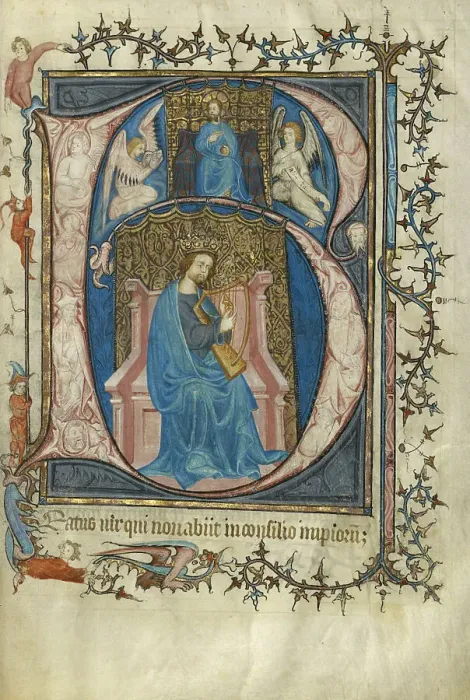 B
Eatus uir qui non abiit in consilio impiorũ;